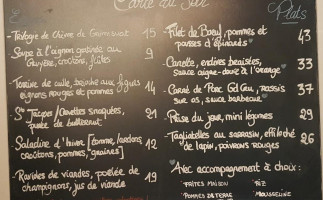 Carte du Soir
Plats
- Trilogie de Chèvre de 15
- Soupe à l'oignon gratinée au 9
Gruyère, croûtons, frites
- Terrine de caille, beurre aux figues 14
oignons rouges et pommes
- Stes Jacques / Ganettes snackées, 21
purée de butternut
- Saladine d'hiver [comme, lardons, 12
croûtons, pommes, graines]
- Ravioles de viandes, poêlée de 19
champignons, jus de viande
- Filet de Boeuf, pommes et 43
pousses d'épinards
- Canette, endives braisées, 33
Sauce aigre-douce à l'orange
- Carré de Porc, rassis 37
sur os, sauce barbecue
- Prise du jour, mini légumes 29
- Tagliatelles au sarrasin, effiloché 26
de lapin, poivrons rouges
Avec accompagnement à choix:
FRITES MAISON RIZ
POMMES DE TERRE MOUSSELINE